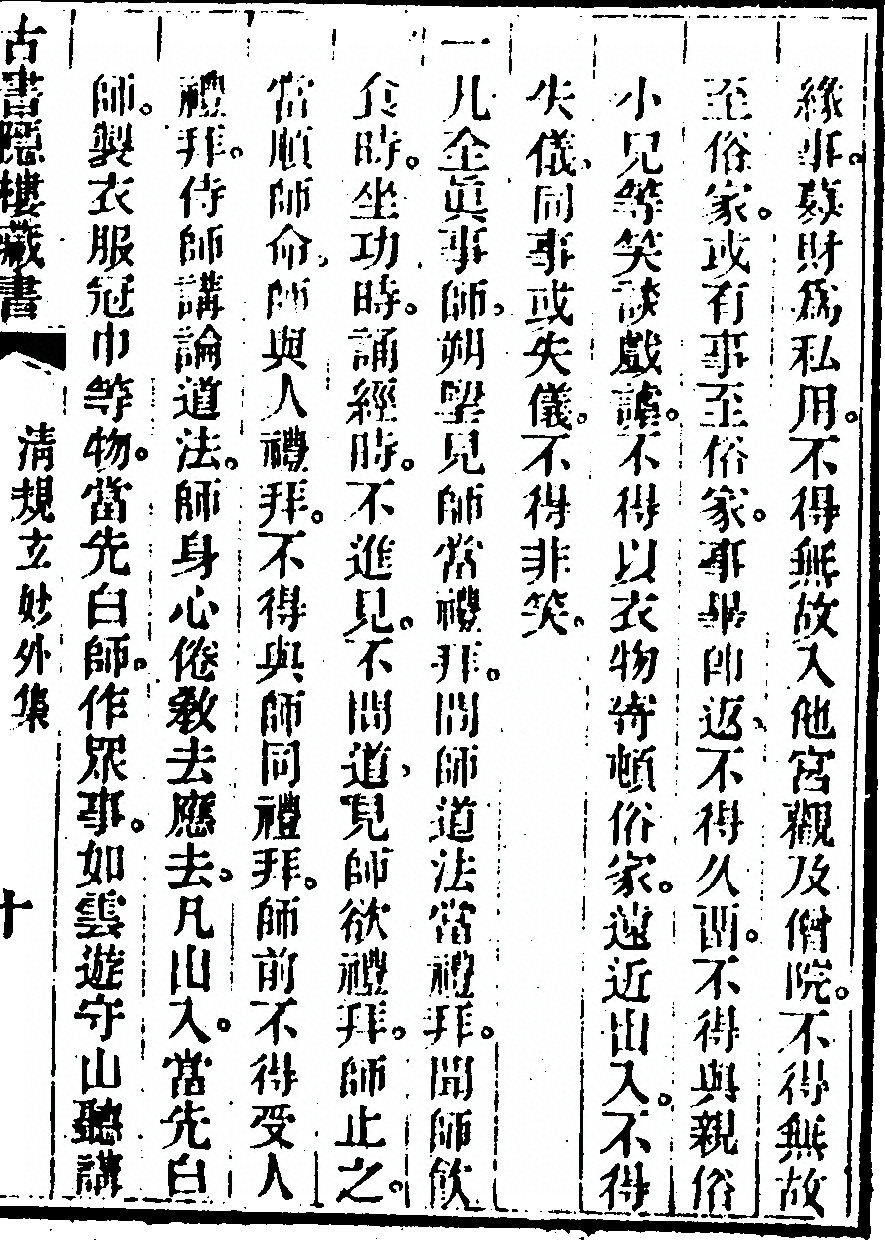 緣事。募財爲私用。不得無故入他宮觀及僧院。不得無故
至俗家。或有事至俗家。事畢卽返、不得久留。不得與親俗
小兒等笑談戲謔。不得以衣物寄頓俗家。遠近出入。不得
失儀、同事或失儀。不得非笑。
一凡全眞事師、朔望見師當禮拜。問師道法當禮拜。聞師飮
食時。坐功時。誦經時。不進見。不問道、見師欲禮拜。師止之。
當順師命、師與人禮拜。不得與師同禮拜。師前不得受人
禮拜。侍師講論道法。師身心倦敎去應去。凡出入。當先白
師。製衣服冠巾等物。當先白師。作眾事。如雲遊守山聽講
古書隱樓藏書
淸規玄妙外集
十